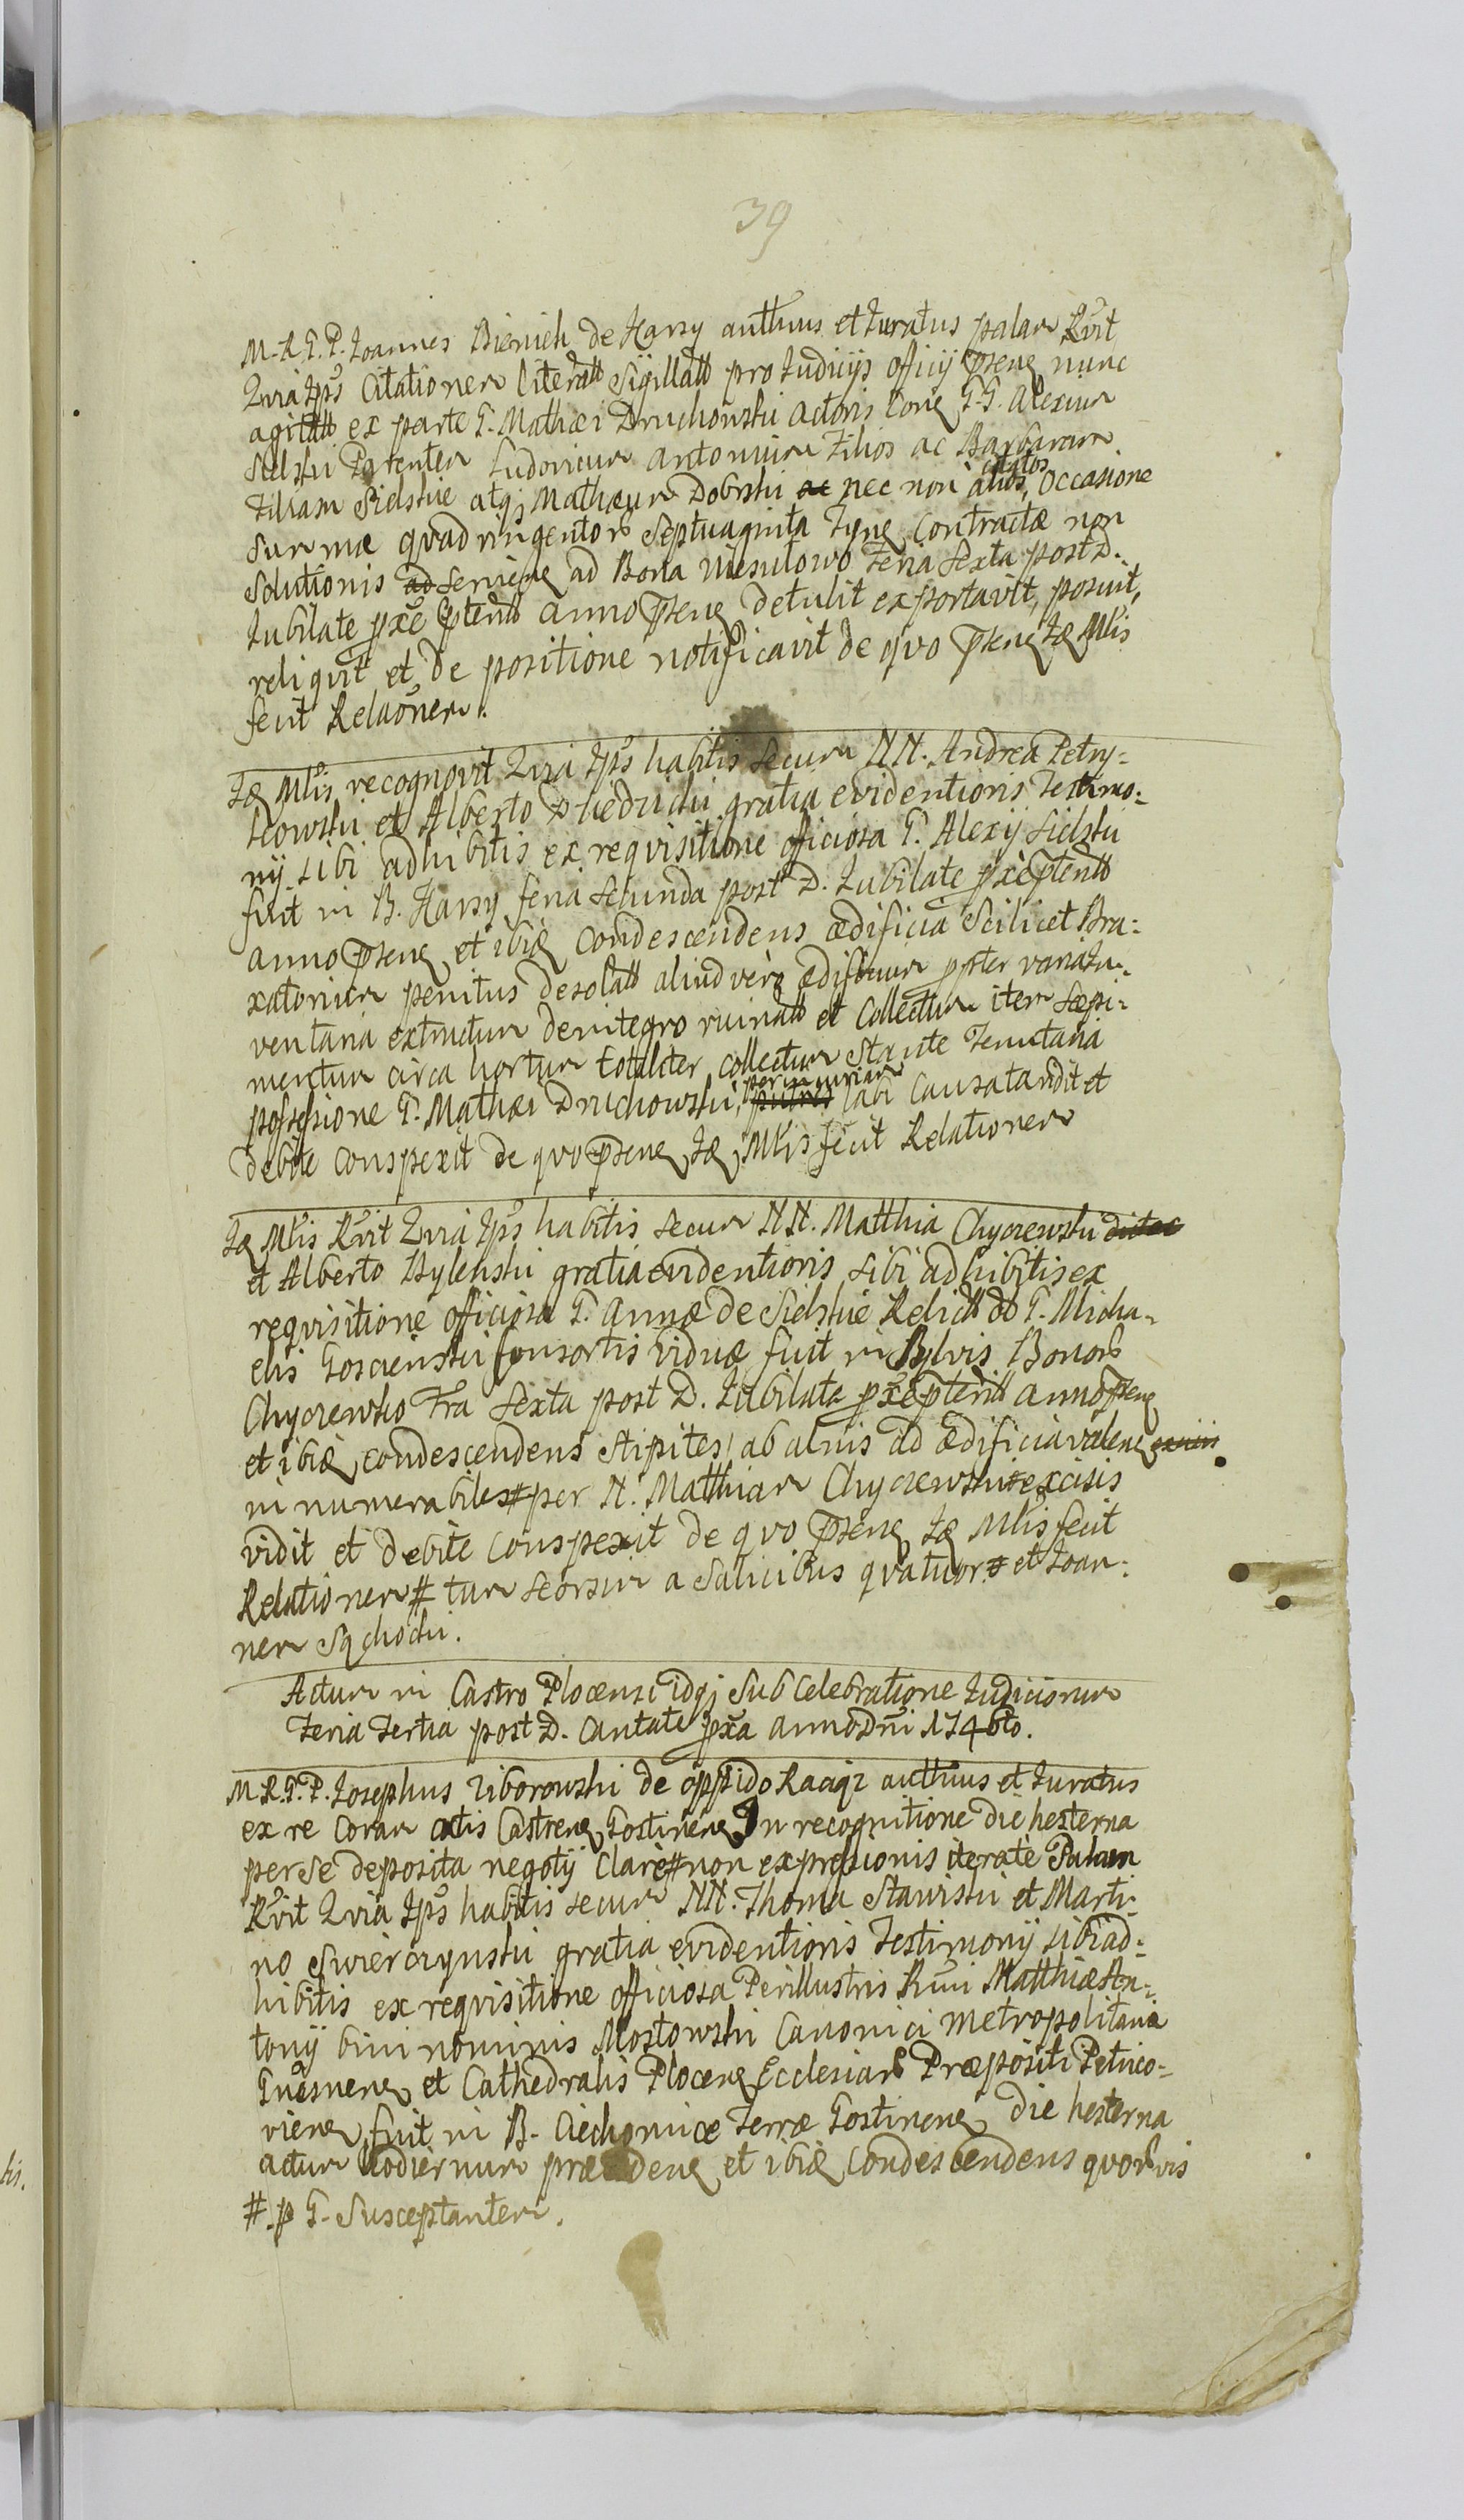 39
M. R. G. P. Joannes Bieniek de Karsy authus et Juratus palam Rṽit
Quia Ip̃s Citationem literatt Sigillatt pro Judicijs officij p̃sene nunc
agitatt ex parte G. Mathæi Druchowski actoris Cone G.G. Alexium
Sielski Parentem Ludovicum Antonium Filios ac Barbaram
Filiam Sielskie atqȝ Mathæum Dobrski ac nec non alios citatos, Occasione
Summæ quadringentor Septuaginta Tyne Contractæ non
Solutionis ad Serviene ad Bona Niesulowo Feria Sexta post D.
Jubilate px̃e p̃teritt anno p̃sene detulit exportavit, posuit,
reliquit et de positione notificavit de quo p̃sene Jæ Mlis
fecit Relaõnem.
Jæ Mlis recognovit Quia Ip̃s habitis secum NN. Andrea Petry-
kowski et Alberto Dziedzicki gratia evidentioris Testimo-
nij sibi adhibitis ex requisitione officiosa G. Alexij Sielski
fuit in B. Karsy feria secunda post D. Jubilate px̃e p̃teritt
anno p̃sene et ibiæ Condescendens ædificia Scilicet Bra-
xatorium penitus desolatt aliud verò ædificium p̃pter varia In-
ventaria extructum de integro ruinatt et Collectum item sæpi-
mentum circa hortum totaliter collectum Stante Tenutaria
possessione G. Mathæi Druchowski, putres per incuriam labi Causata vidit et
debite conspexit de quo p̃sene Jæ Mlis fecit Relationem
Jæ Mlis Rṽit Quia Ip̃s habitis secum NN. Matthia Chyczewski dictac
et Alberto Bylenski gratia evidentioris sibi adhibitis ex
requisitione officiosa G. Annæ de Sielskie Relictt G. Micha-
elis Goscienski Consortis Viduæ fuit in Sylvis Bonor
Chyczewko Fra Sexta post D. Jubilate px̃e p̃teritt anno p̃sene
et ibiæ condescendens Stipites ab alnis ad ædificia valene
innumerabiles # per N. Matthiam Chyczewski # excisis
vidit et debite Conspexit de quo p̃sene Jæ Mlis fecit
Relationem # tum seorsum a Salicibus quatuor # et Joan-
nem Sqchocki.
Actum in Castro Plocensi idqȝ Sub Celebratione Judiciorum
Feria Tertia post D. Cantate px̃a anno Dñi 1746to.
M R. G. P. Josephus Ziborowski de oppido Raciąz authus et Juratus
ex re Coram actis Castrene Gostinene In recognitione die hesterna
per se deposita negotij Clarè # non expressionis iterate Palam
Rṽit Quia Ip̃s habitis secum NN. Thoma Stawiski et Marti-
no Swierczynski gratia evidentioris Testimonij sibi ad-
hibitis ex requisitione officiosa Perillustris Rṽi Matthiæ An-
tonij bini nominis Mostowski Canonici Metropolitana
Gnesnene et Cathedralis Plocene Ecclesiar Præpositi Petrico-
viene fuit in B. Ciechomice Terræ Gostinene die hesterna
actum hodiernum præcedene et ibiæ Condescendens quorvis
# p G. Susceptantem.